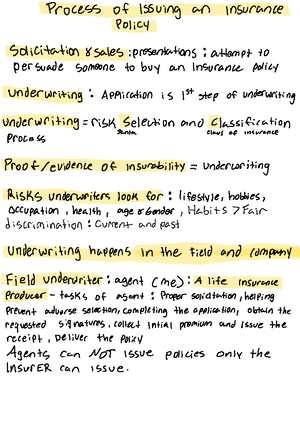 Process of Issuing an Insurance
Policy
Solicitation & sales : presentations : attempt to
persuade someone to buy an Insurance policy
Underwriting : Application is 1st step of underwriting
underwriting = risk Selection and Classification
Santa Claus of insurance
Process
Proof/evidence of insurability = underwriting
Risks underwriters look for : lifestyle, hobbies,
occupation, health, age & Gender, Habits > Fair
discrimination : Current and past
Underwriting happens in the field and company
Field underwriter : agent (me) : A life insurance
Producer - tasks of agent : Proper solicitation, helping
Prevent adverse selection, completing the application, obtain the
requested signatures, collect intial premium and issue the
receipt, Deliver the Policy
Agents can NOT issue policies only the
InsurER can issue.